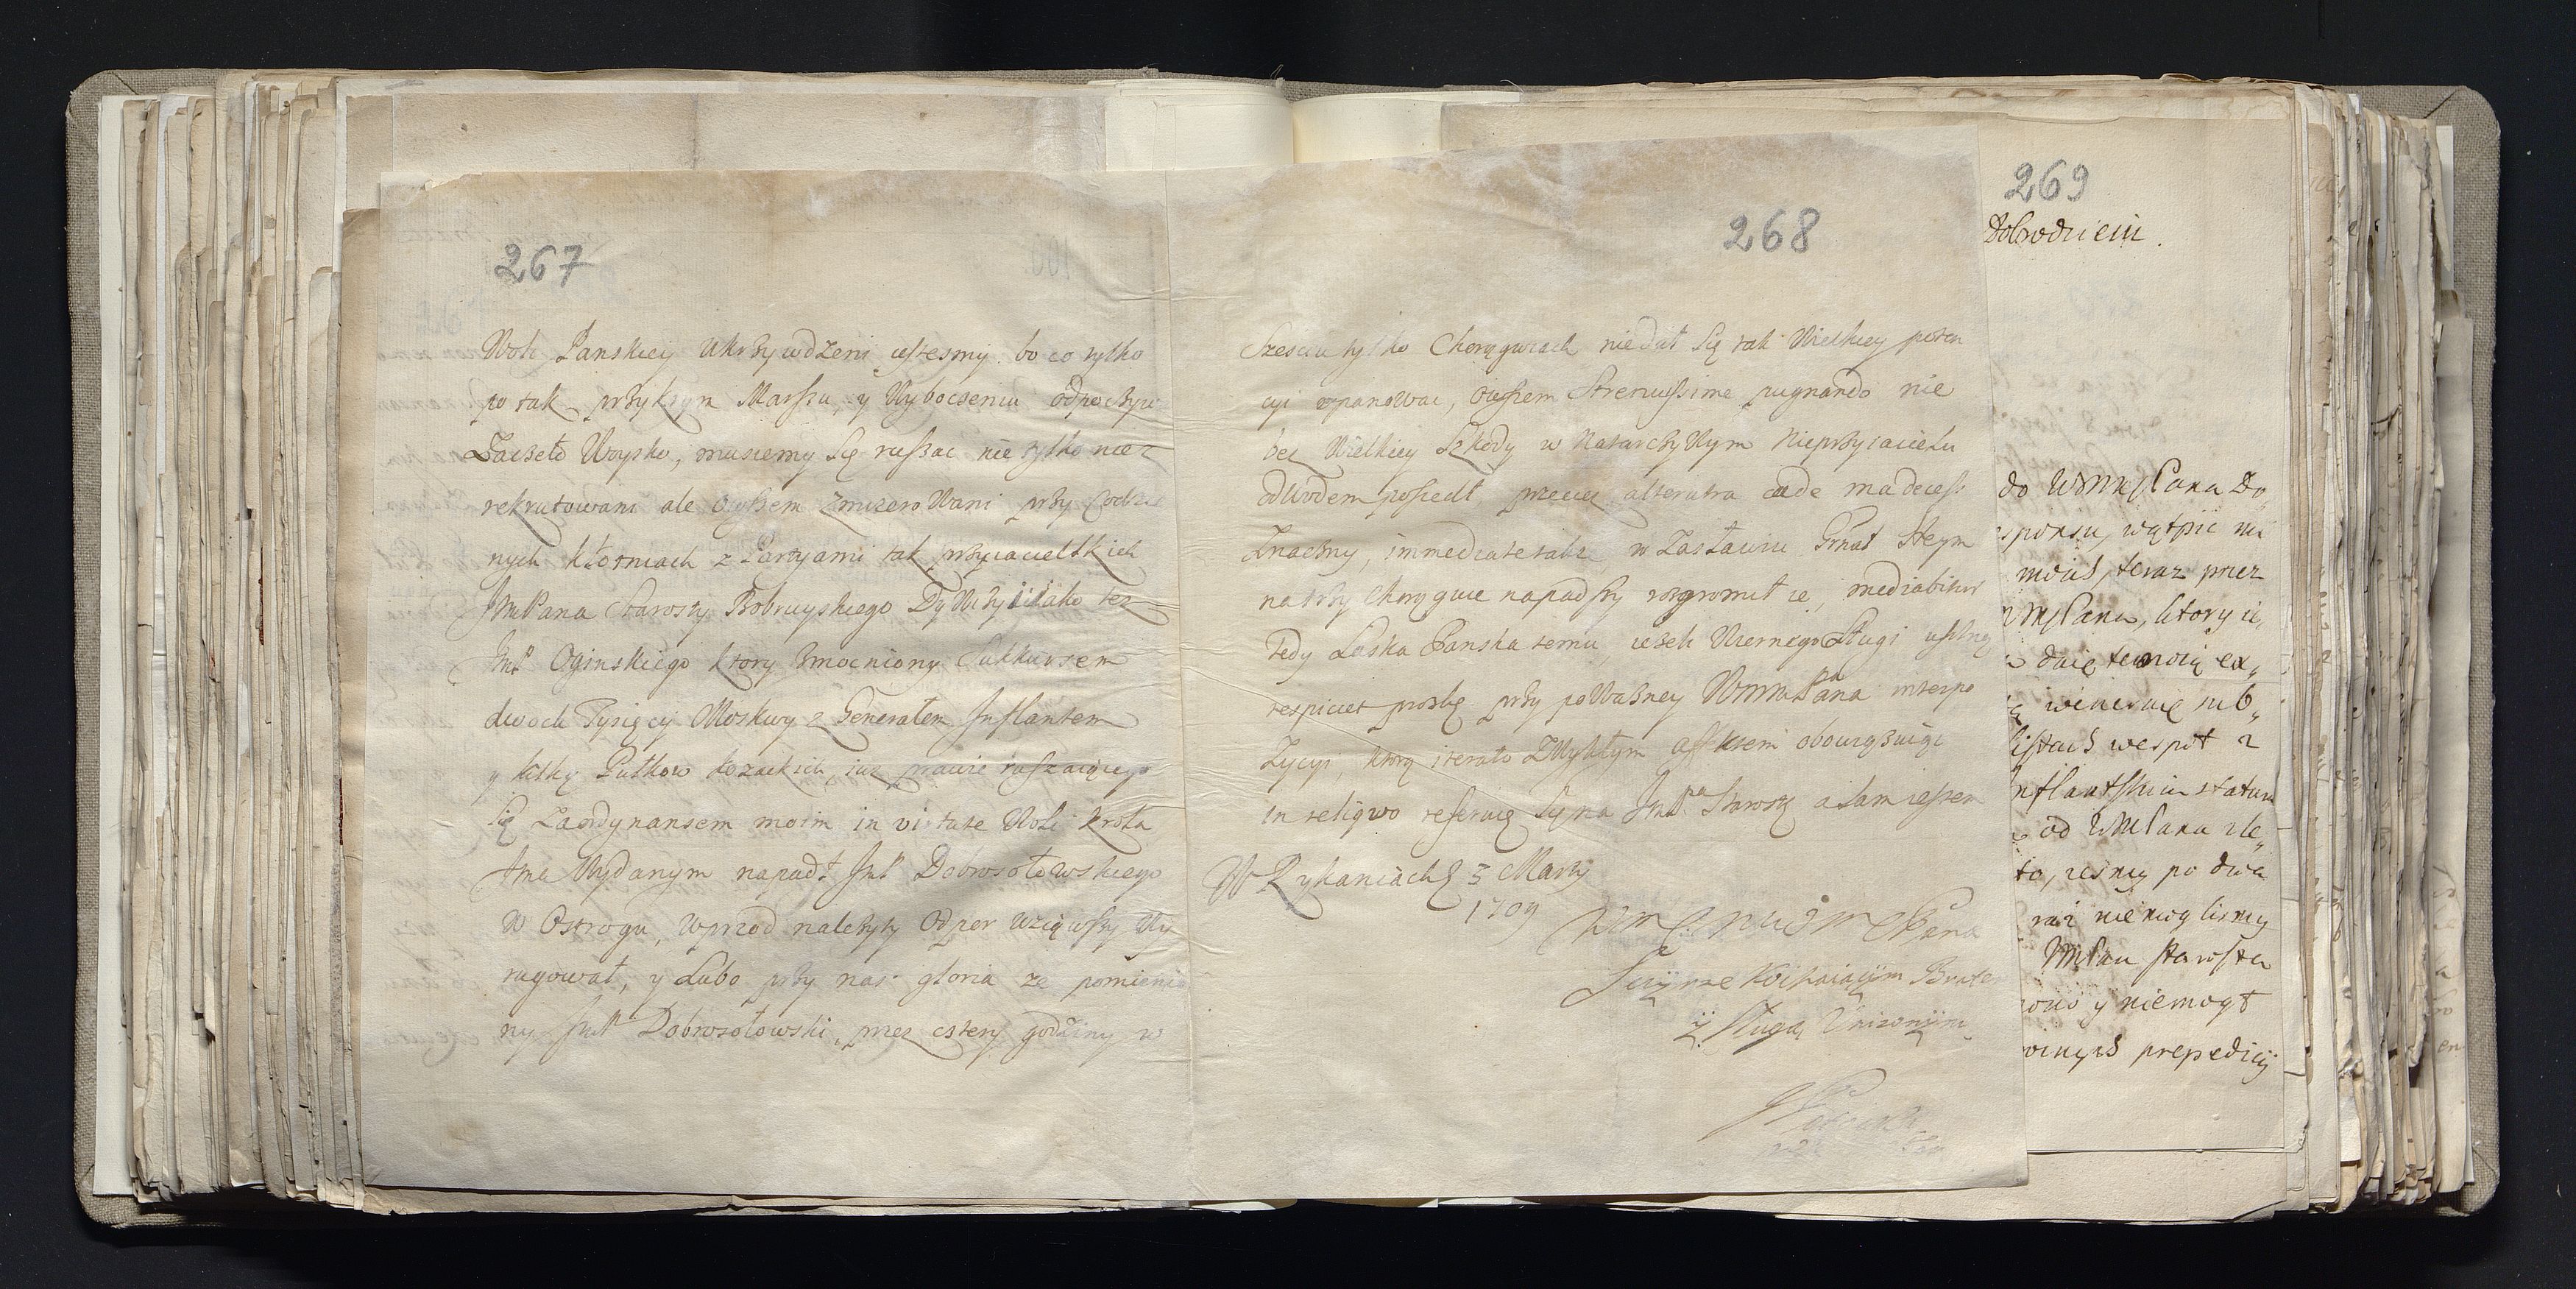 267
Woli Panskiey ukrzywdzeni iestesmy. bo co tylko
po tak przykrym Marszu, y Wyboczeniu odpoczyw
Zaczeło Woysko, musiemy się ruszac nie tylko nie
rekrutowani ale owszem zmizerowani przy Codzie
nych kłotniach z Partyami tak przyiacielskich
JmPana Starosty Bobruyskiego Dywizyi iako tez
ImP Oginskiego ktory zmocniony Sukkursem
dwoch Tysięcy Moskwy z Generałem Inflantem
y kilką Pułkow kozackich, iuz prawie ruszaiącego
się za ordynansem moim in virtute Woli Krola
Jme Wydanym napadł ImP Dobrosołowskiego
W Ostrogu, wprzod nalezyty odper wziąwszy Wy
rugował, y Lubo przy nas gloria ze pomienio
ny ImP Dobrosołowski, przez cztery godziny w
268
Szesciu tylko Chorągwiach niedał się tak Wielkiey poten
cyi opanowac, owszem Strenuissime pugnando nie
bez Wielkiey Szkody w Natarczywym Nieprzyiacielu
odwodem poszedł przeciez alterutra clade
Znaczny, immediate takze w Zastawiu Grnał Heyn
na trzy Chorągwie napadszy rozgromił ie,
Tedy Łaska Panska temu, iezeli Wiernego Sługi
respiciet prozbę przy powazney WmmPana interpo
zycyi, ktorą iterato Zwykłym affektem obowiązuiąc
in reliquo referuię się na ImPa Starostę a sam iestem
W Rykaniach 3 Marty
1709
Pana
Szczyrze Kochaiącym Brate
y Sługą Unizonym
269
Dobrodzieiu.
do WmmPana Do
sponsu, wątpic ni
moich, teraz przez
mPanu, ktory ie,
daię temoią ex,
wiernię sub,
listach wespoł z
nflantskim statum
od WmPana zle,
to, iesmy po dwa
raz niemoglismy
WmPan starosta
y niemogł
prepedicij